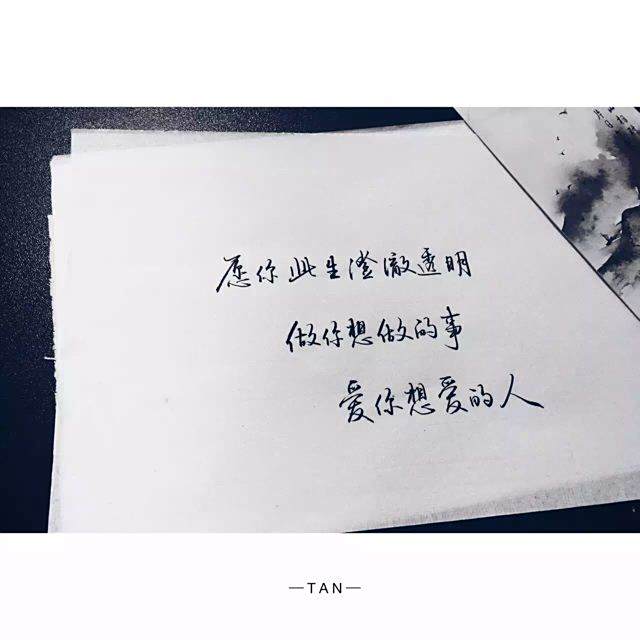 愿你此生澄澈透明
做你想做的事
爱你想爱的人
—TAN—